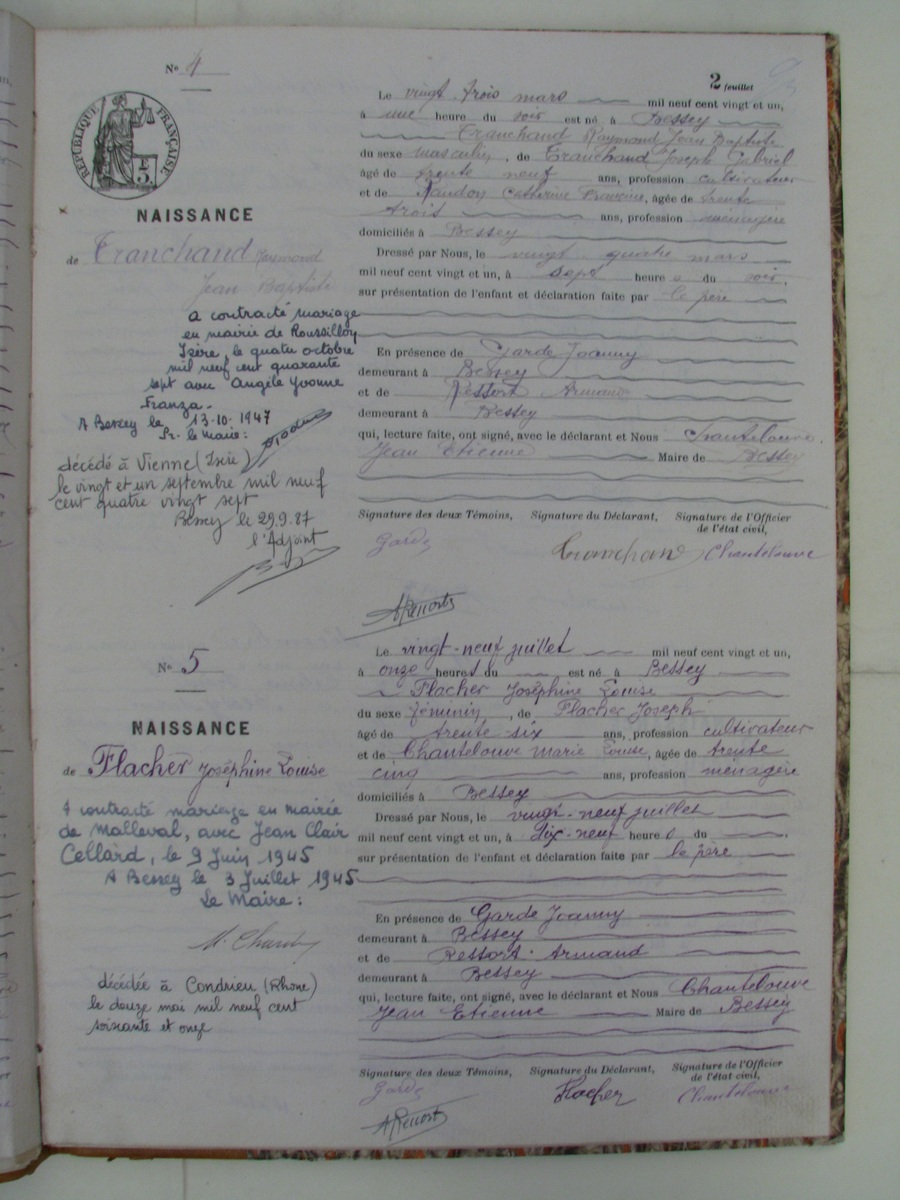 2 feuillet
RÉPUBLIQUE FRANÇAISE
No 4
NAISSANCE
de Tranchand Raymond
Jean Baptiste
a contracté mariage
en mairie de Roussillon
Isère, le quatre octobre
mil neuf cent quarante
sept avec Angèle Yvonne
Franza.
A Bessey le 13-10-1947
Pr. le Maire :
décédé à Vienne (Isère)
le vingt et un septembre mil neuf
cent quatre vingt sept
Bessey le 29.9.87
l'Adjoint
Le vingt trois mars mil neuf cent vingt et un,
à une heure du soir est né à Bessey
Tranchand Raymond Jean Baptiste
du sexe masculin, de Tranchand Joseph Gabriel
âgé de trente neuf ans, profession cultivateur
et de Catherine, âgée de trente
trois ans, profession ménagère
domiciliés à Bessey
Dressé par Nous, le vingt quatre mars
mil neuf cent vingt et un, à sept heure s du soir,
sur présentation de l'enfant et déclaration faite par le père
En présence de Garde Joanny
demeurant à Bessey
et de Ressort Armand
demeurant à Bessey
qui, lecture faite, ont signé, avec le déclarant et Nous Chantelouve
Jean Etienne Maire de Bessey
Signature des deux Témoins, Signature du Déclarant, Signature de l'Officier
de l'état civil,
Garde Tranchand Chantelouve
A Ressort
No 5
NAISSANCE
de Flacher Joséphine Louise
A contracté mariage en mairie
de Malleval, avec Jean Clair
Cellard, le 9 Juin 1945
A Bessey le 3 Juillet 1945
Le Maire :
décédée à Condrieu (Rhône)
le douze mai mil neuf cent
soixante et onze
Le vingt-neuf juillet mil neuf cent vingt et un,
à onze heures du est né à Bessey
Flacher Joséphine Louise
du sexe féminin, de Flacher Joseph
âgé de trente six ans, profession cultivateur
et de Chantelouve Marie Louise, âgée de trente
cinq ans, profession ménagère
domiciliés à Bessey
Dressé par Nous, le vingt-neuf juillet
mil neuf cent vingt et un, à dix-neuf heure s du
sur présentation de l'enfant et déclaration faite par le père
En présence de Garde Joanny
demeurant à Bessey
et de Ressort Armand
demeurant à Bessey
qui, lecture faite, ont signé, avec le déclarant et Nous Chantelouve
Jean Etienne Maire de Bessey
Signature des deux Témoins, Signature du Déclarant, Signature de l'Officier
de l'état civil,
Garde Flacher Chantelouve
A Ressort